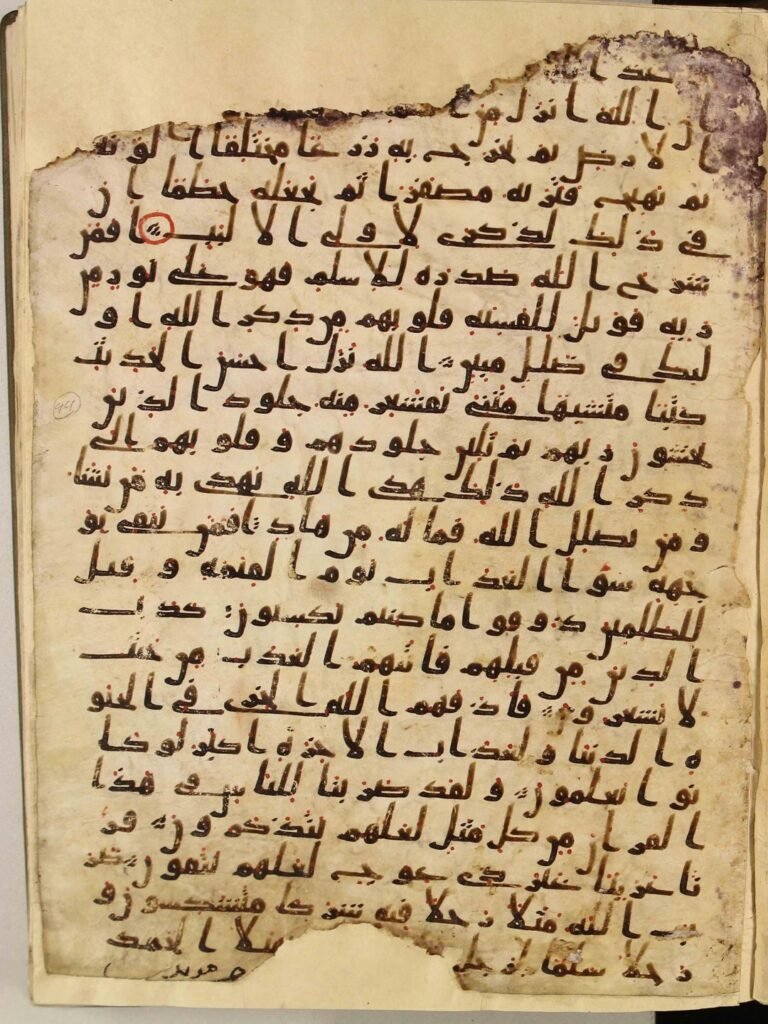 ان الله انزل من
الارض ثم يخرج به زرعا مختلفا الونه
ثم يهيج فتريه مصفرا ثم يجعله حطما ان
في ذلك لذكرى لاولي الالبب افمن
شرح الله صدره للاسلم فهو على نور من
ربه فويل للقسيه قلوبهم من ذكر الله او
ليك في ضلل مبين الله نزل احسن الحديث
كتبا متشبها مثني تقشعر منه جلود الذين
يخشون ربهم ثم تلين جلودهم وقلوبهم الى
ذكر الله ذلك هدى الله يهدي به من يشا
ومن يضلل الله فما له من هاد افمن يتقي بو
جهه سوا العذاب يوم القيمه وقيل
للظلمين ذوقوا ما كنتم تكسبون كذب
الذين من قبلهم فاتيهم العذب من حيث
لا يشعرون فاذقهم الله الخزي في الحيو
ه الدنيا ولعذاب الاخره اكبر لو كا
نوا يعلمون ولقد ضربنا للناس في هذا
القران من كل مثل لعلهم يتذكرون قر
انا عربيا غير ذي عوج لعلهم يتقون ضر
ب الله مثلا رجلا فيه شركا متشكسون و
رجلا سلما لرجل مثلا الحمد